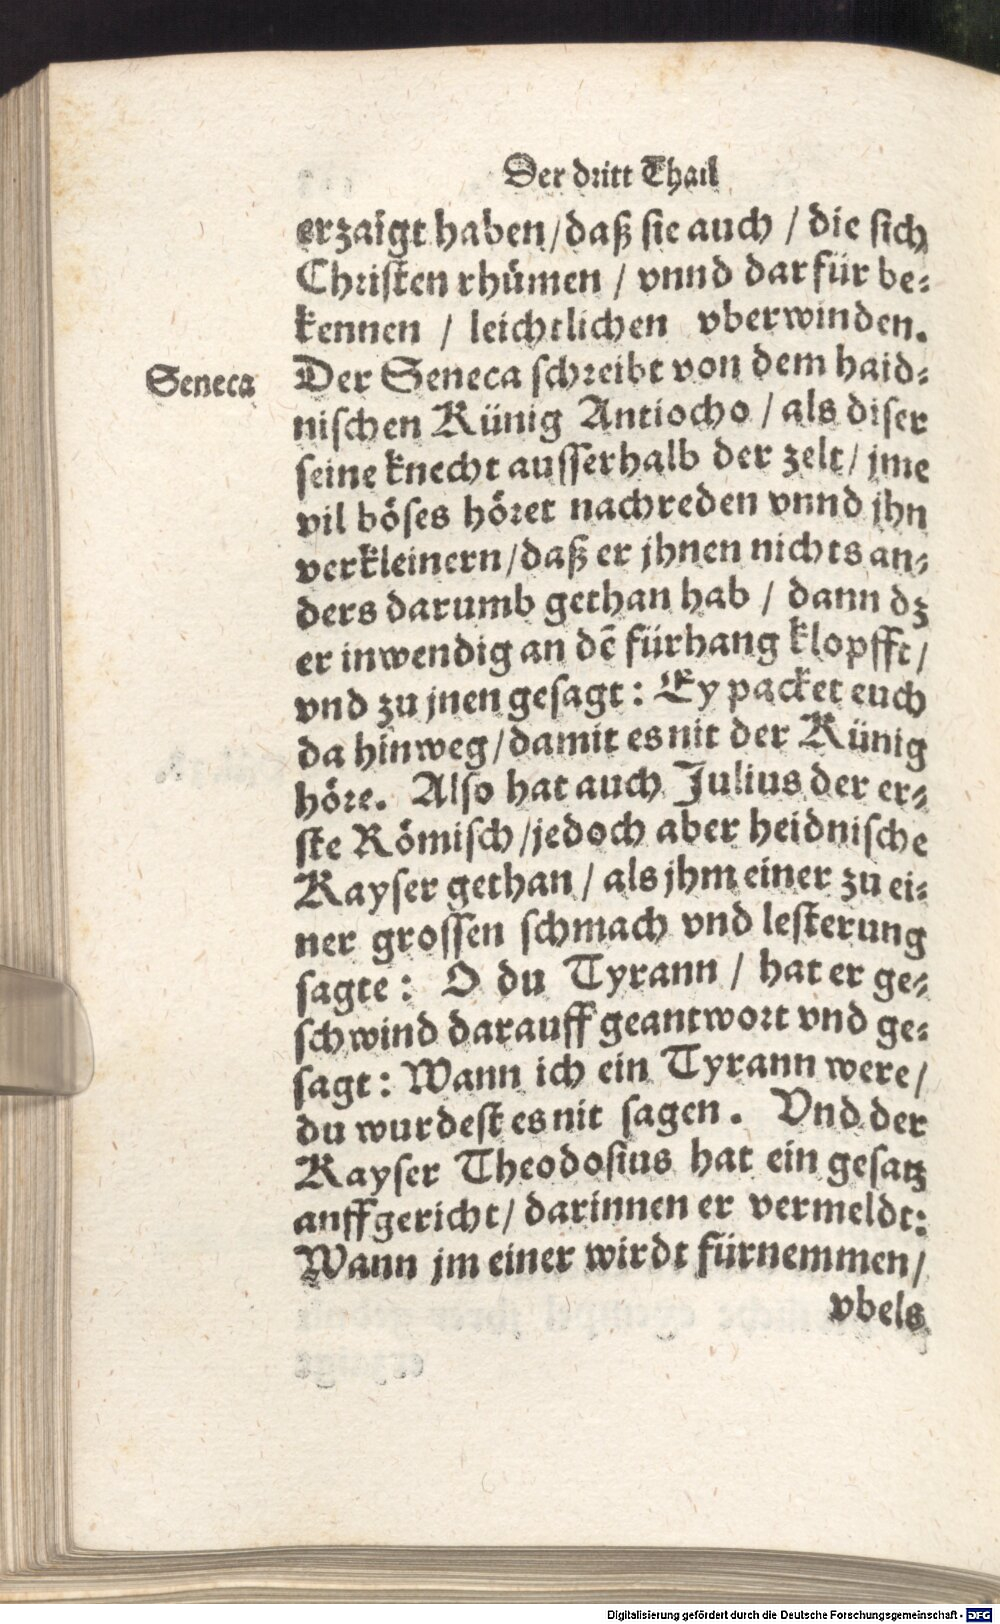 Der dritt Thail
erzaigt haben / daß sie auch / die sich
Christen rhümen / vnnd darfür be-
kennen / leichtlichen vberwinden.
Seneca
Der Seneca schreibt von dem haid-
nischen Künig Antiocho / als diser
seine knecht ausserhalb der zelt / jme
vil böses höret nachreden vnnd jhn
verkleinern / daß er jhnen nichts an-
ders darumb gethan hab / dann dz
er inwendig an dē fürhang klopfft /
vnd zu jnen gesagt: Ey packet euch
da hinweg / damit es nit der Künig
höre. Also hat auch Julius der er-
ste Römisch / jedoch aber heidnische
Kayser gethan / als jhm einer zu ei-
ner grossen schmach vnd lesterung
sagte: O du Tyrann / hat er ge-
schwind darauff geantwort vnd ge-
sagt: Wann ich ein Tyrann were /
du wurdest es nit sagen. Vnd der
Kayser Theodosius hat ein gesatz
auffgericht / darinnen er vermeldt:
Wann jm einer wirdt fürnemmen /
vbels
Digitalisierung gefördert durch die Deutsche Forschungsgemeinschaft - DFG